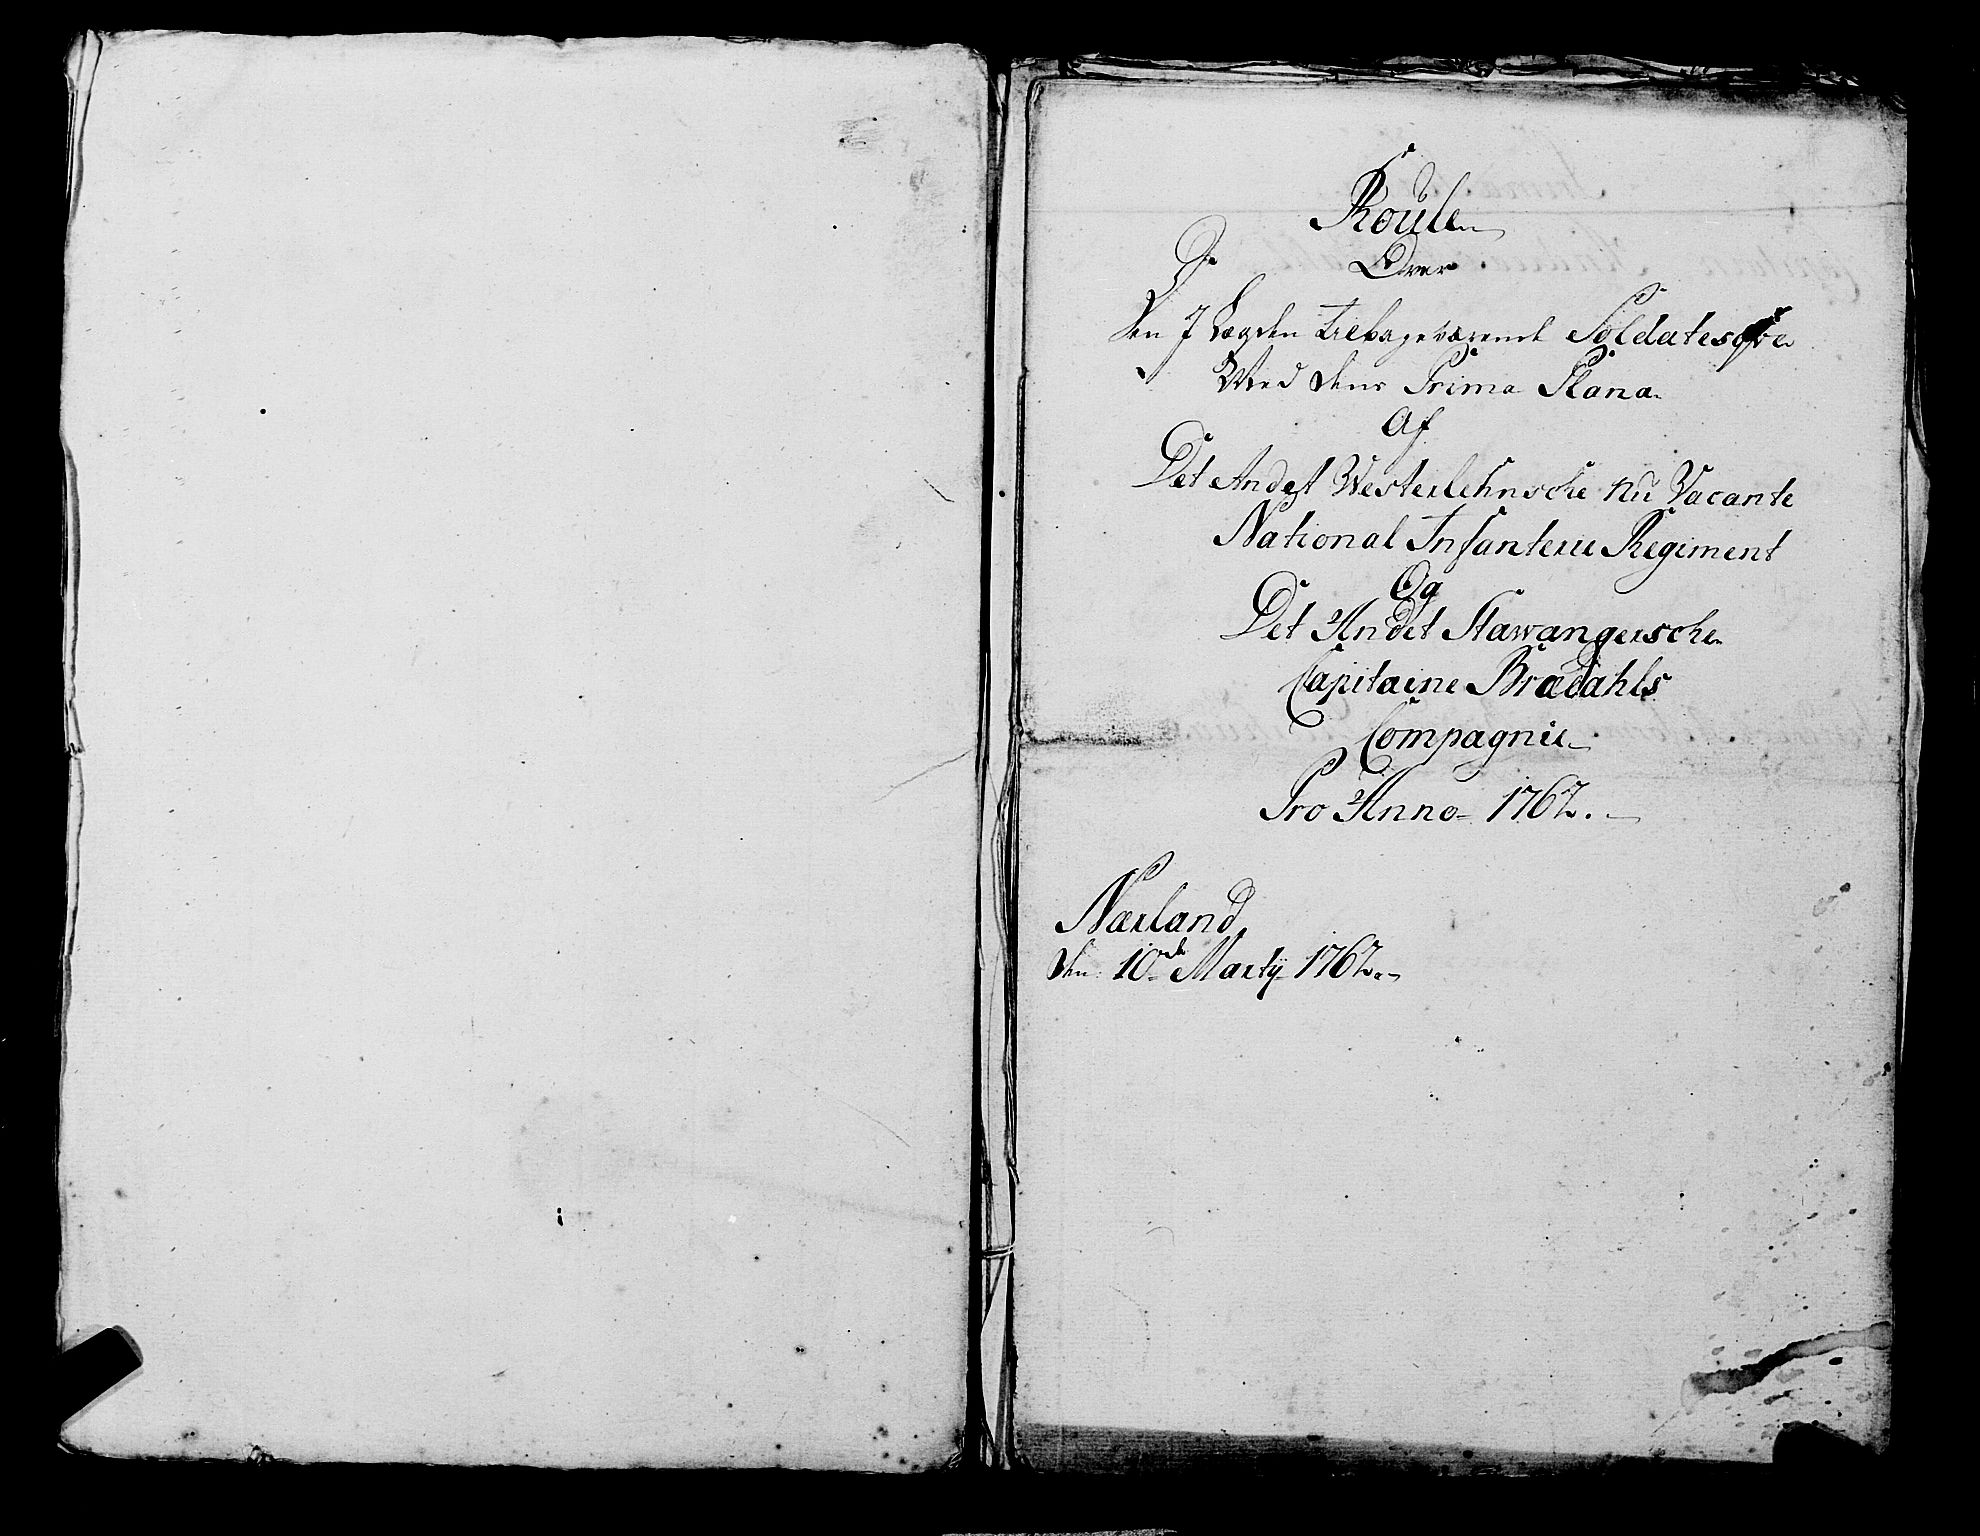 Roule
Over
De
den J Lægden tilbageværende Soldatesqve
Med dens Prima Plana
Af
Det Andet Westerlehnsche nu Vacante
National Infanterie Regiment
Og
Det Andet Stawangersche
Capitaine Brædahls
Compagnie
Pro Anno 1762.
Nærland
den 10de Martij 1762.